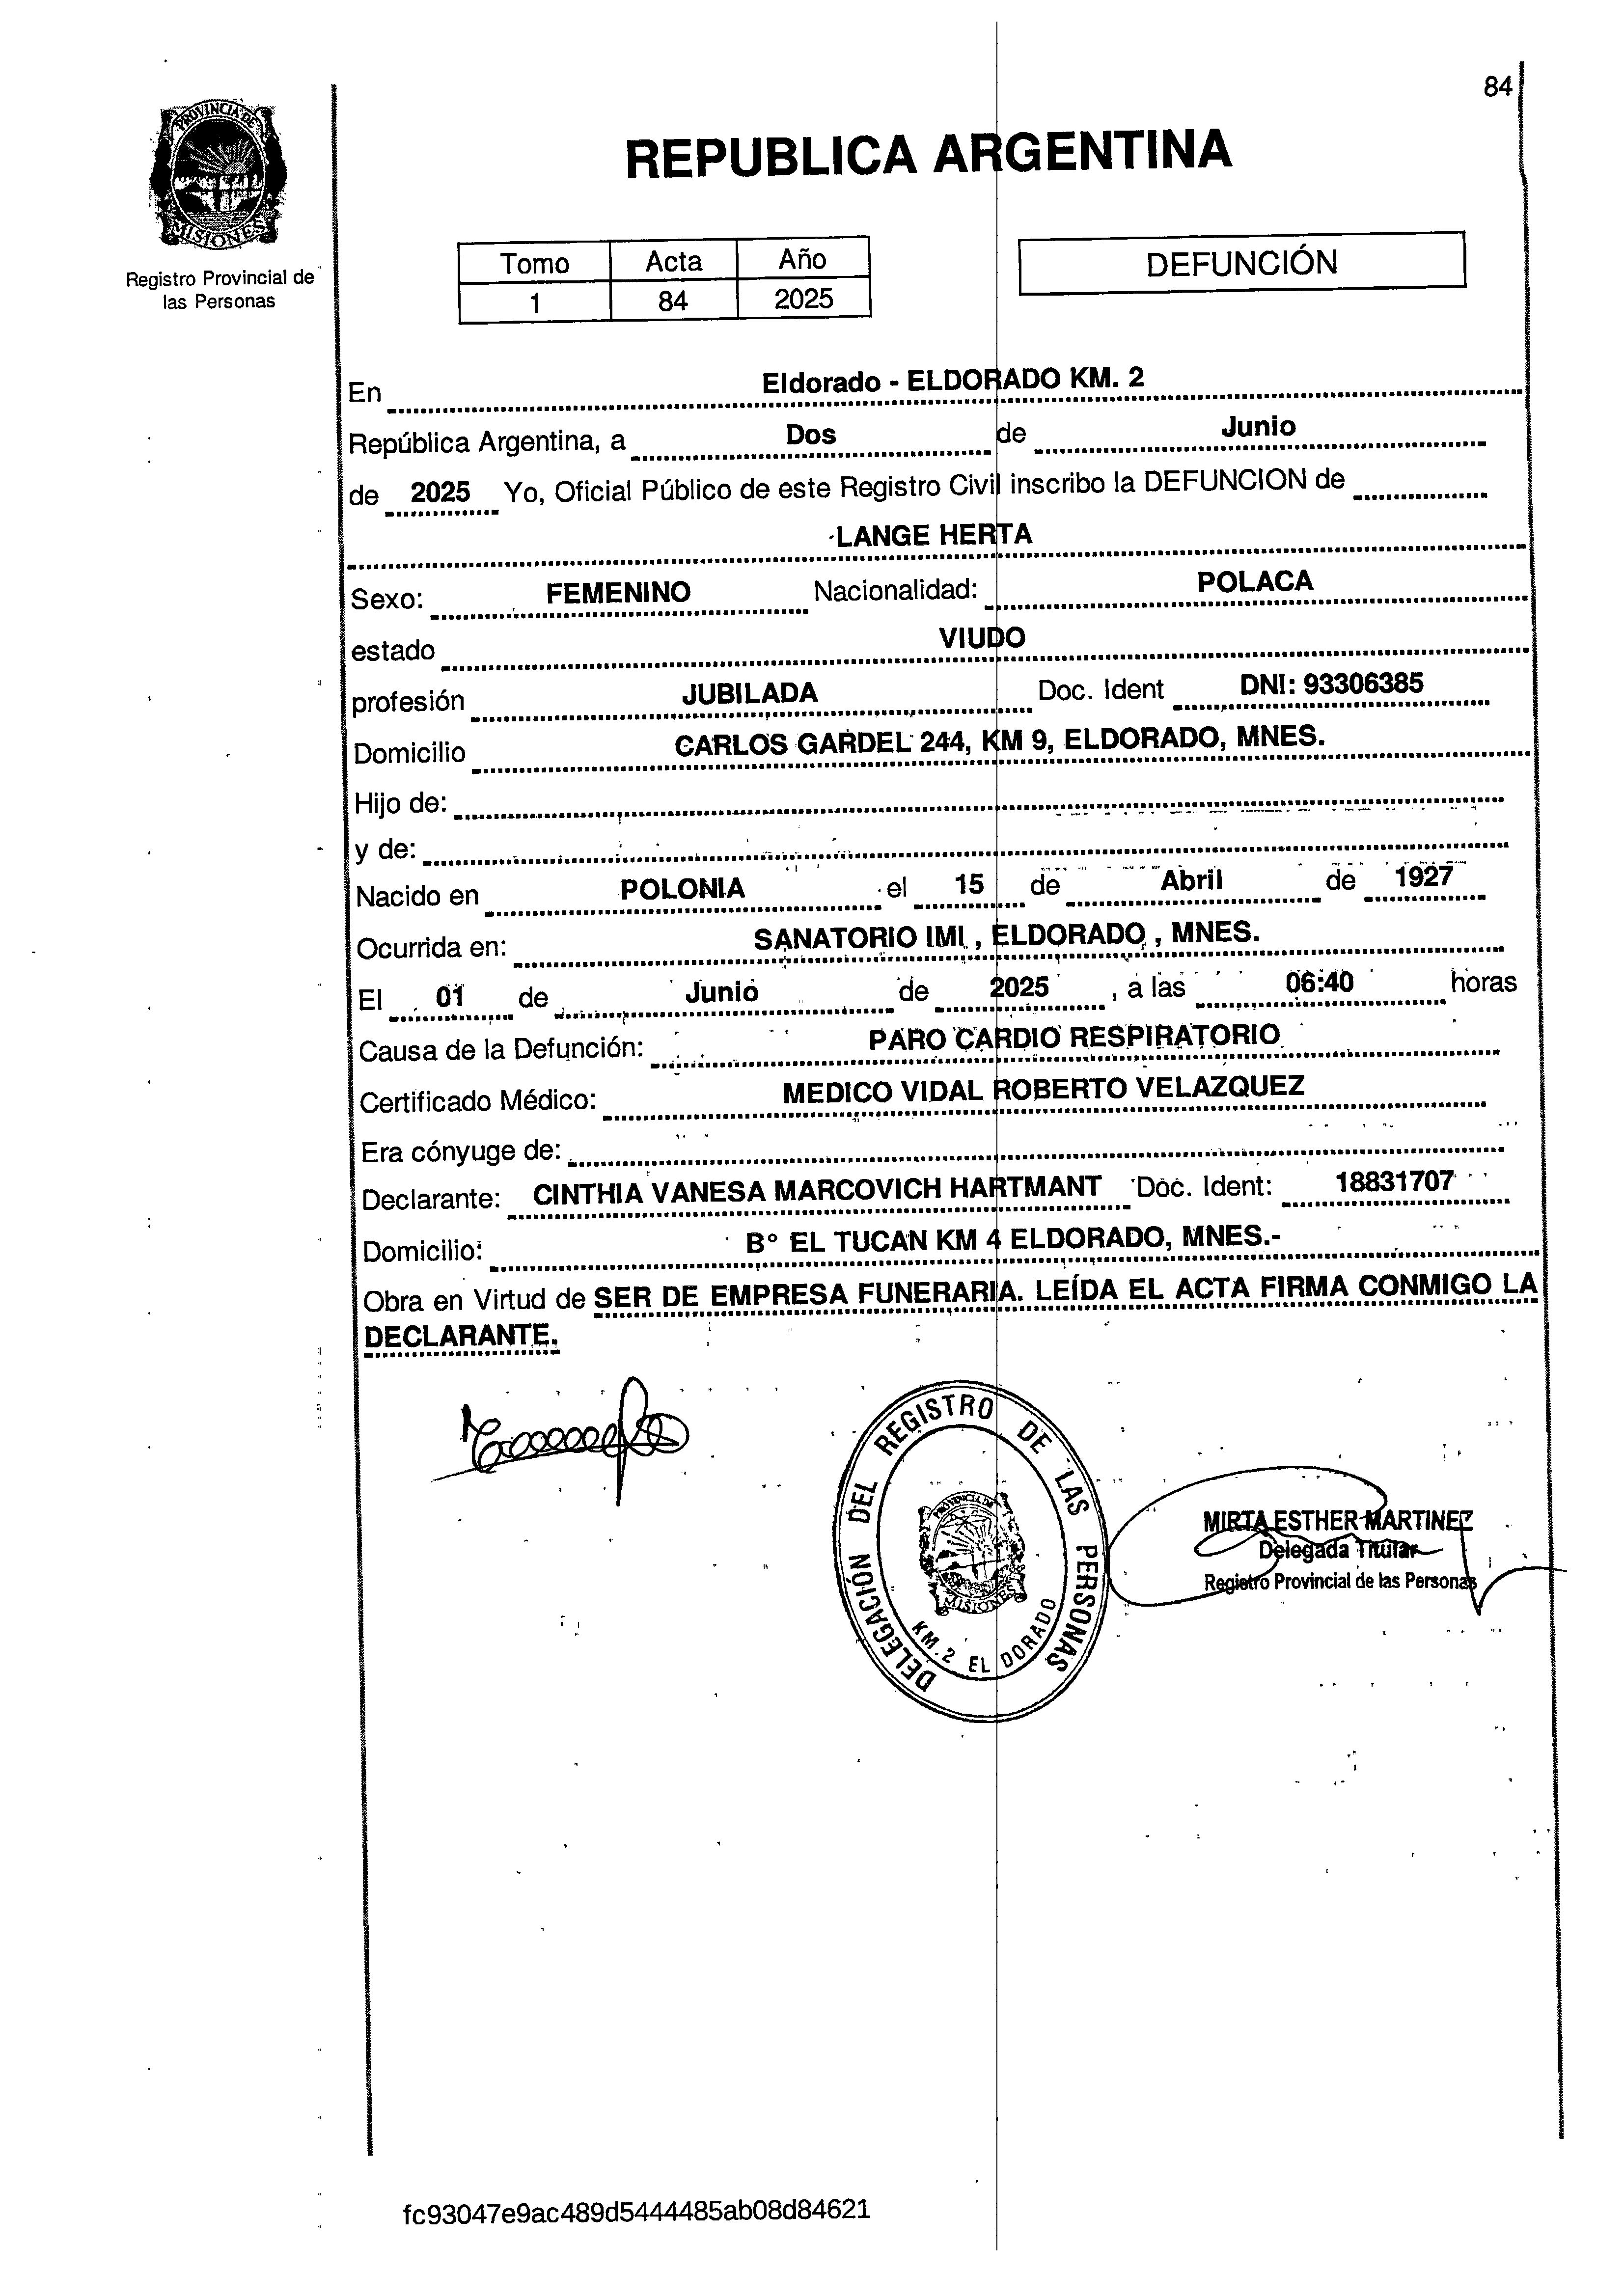 84
PROVINCIA DE
MISIONES
Registro Provincial de
las Personas
REPUBLICA ARGENTINA
Tomo Acta Año
1 84 2025
DEFUNCIÓN
En Eldorado - ELDORADO KM. 2
República Argentina, a Dos de Junio
de 2025 Yo, Oficial Público de este Registro Civil inscribo la DEFUNCION de
LANGE HERTA
Sexo: FEMENINO Nacionalidad: POLACA
estado VIUDO
profesión JUBILADA Doc. Ident DNI: 93306385
Domicilio CARLOS GARDEL 244, KM 9, ELDORADO, MNES.
Hijo de:
y de:
Nacido en POLONIA el 15 de Abril de 1927
Ocurrida en: SANATORIO IMI , ELDORADO , MNES.
El 01 de Junio de 2025 , a las 06:40 horas
Causa de la Defunción: PARO CARDIO RESPIRATORIO
Certificado Médico: MEDICO VIDAL ROBERTO VELAZQUEZ
Era cónyuge de:
Declarante: CINTHIA VANESA MARCOVICH HARTMANT Doc. Ident: 18831707
Domicilio: B° EL TUCAN KM 4 ELDORADO, MNES.-
Obra en Virtud de SER DE EMPRESA FUNERARIA. LEÍDA EL ACTA FIRMA CONMIGO LA
DECLARANTE.
DELEGACIÓN DEL REGISTRO DE LAS PERSONAS
PROVINCIA DE
MISIONES
KM. 2 EL DORADO
MIRTA ESTHER MARTINEZ
Delegada Titular
Registro Provincial de las Personas
fc93047e9ac489d5444485ab08d84621